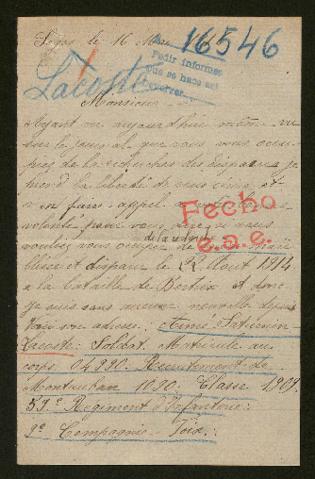 Foix le 16 Mai
16546
Pedir informes
que se hace así
Lacoste
Monsieur
Ayant vu aujourd'hui votre
sur le journal que vous vous occu-
piez de la recherche des disparus je
prend la liberté de vous
faire appel a votre
volonté pour vous
vouliez vous occuper de
Fecho
e.a.e.
blessé et disparu le 22 Août 1914
a la bataille de Bertrix et dont
je suis sans aucune nouvelle depuis
Voici son adresse: Aimé Saturnin
Lacoste: Soldat. Matricule au
corps 04990. Recrutement de
Montauban 1090. Classe 1909.
59e Regiment d'Infanterie
9e Compagnie Foix